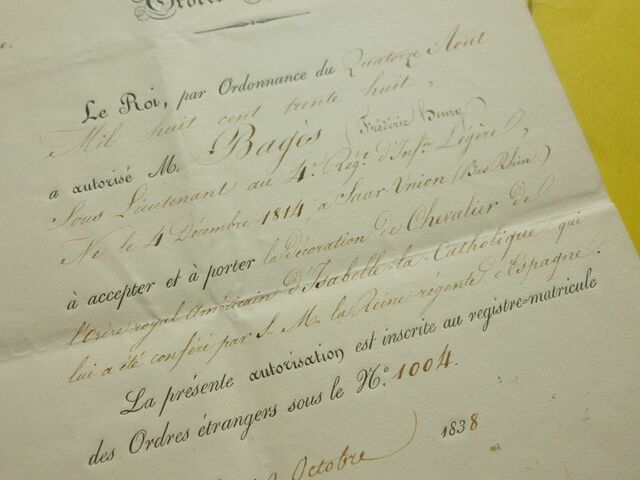 Le Roi, par Ordonnance du Quatorze Aout
Mil huit cent trente huit,
a autorisé M. Bagès (Frédéric Henry)
Sous Lieutenant au 4e Régt. d'Infie Légère,
Né le 4 Décembre 1814, à Saar-Union (Bas Rhin)
à accepter et à porter la décoration de Chevalier de
l'Ordre royal Américain d'Isabelle-la-Catholique, qui
lui a été conféré par S. M. la Reine régente d'Espagne.
La présente autorisation est inscrite au registre=matricule
des Ordres étrangers sous le No. 1004.
Octobre 1838